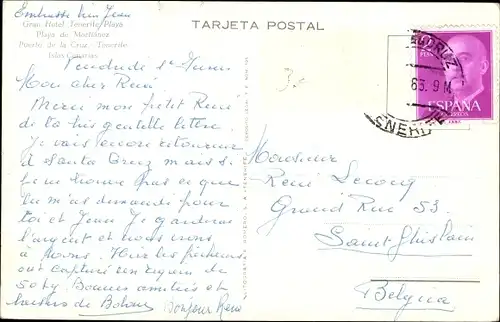 Embrasse bien Jean
Gran Hotel Tenerife Playa
Playa de Martiánez
Puerto de la Cruz - Tenerife
Islas Canarias
TARJETA POSTAL
Mon cher René
Merci mon petit René
de ta très gentille lettre.
Je vais encore retourner
à Santa Cruz mais si
je ne trouve pas ce que
tu m'as demandé pour
toi et Jean je garderai
l'argent et nous irons
à Mons. Hier les pêcheurs
ont capturé un requin de
50 kg. Bonnes amitiés et
baisers de
Bonjour René
Monsieur
René Lecocq
Grand Rue 53
Saint-Ghislain
Belgica
63. 9 M
ESPAÑA
CORREOS